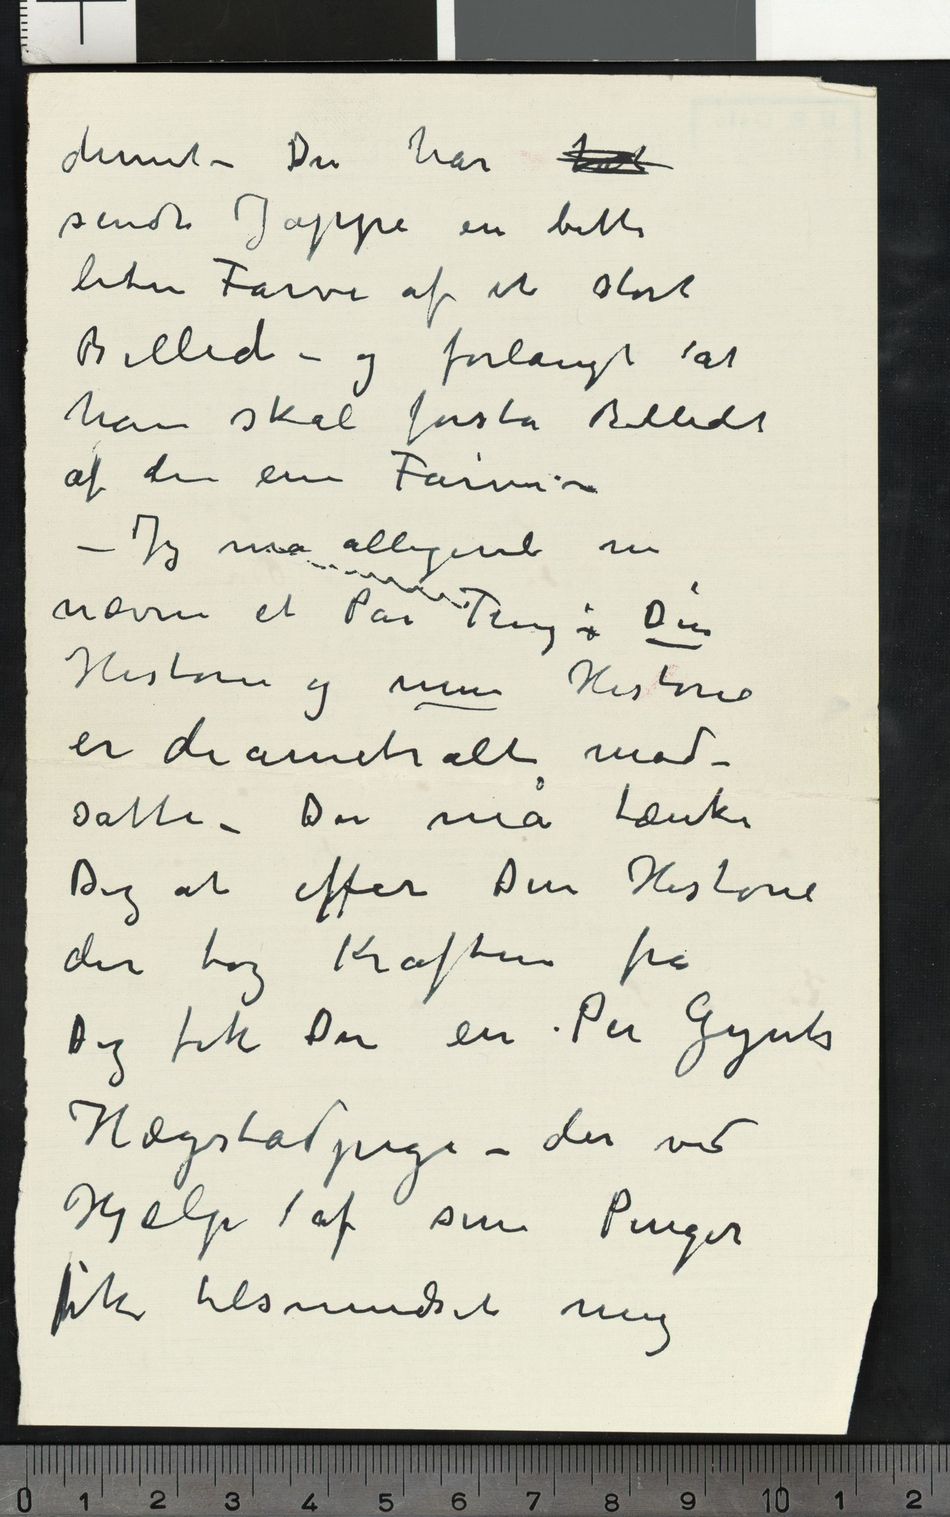 dumt – Du har
sendt Jappe en bitte
liten Farve af et stort
Billed – og forlangt at
han skal forstå Billedet
af den ene Farven –
– Jeg må alligevel nu
nævne et Par Ting: Din
Historie og min Historie
er diametralt mod-
satte – Du må tænke
Dig at efter Din Historie
der tog Kraften fra
Dig fik Du en Per Gynts
Hægstadpige – der ved
Hjælp af sine Penger
fik tilsmudset mig
0 1 2 3 4 5 6 7 8 9 10 1 2